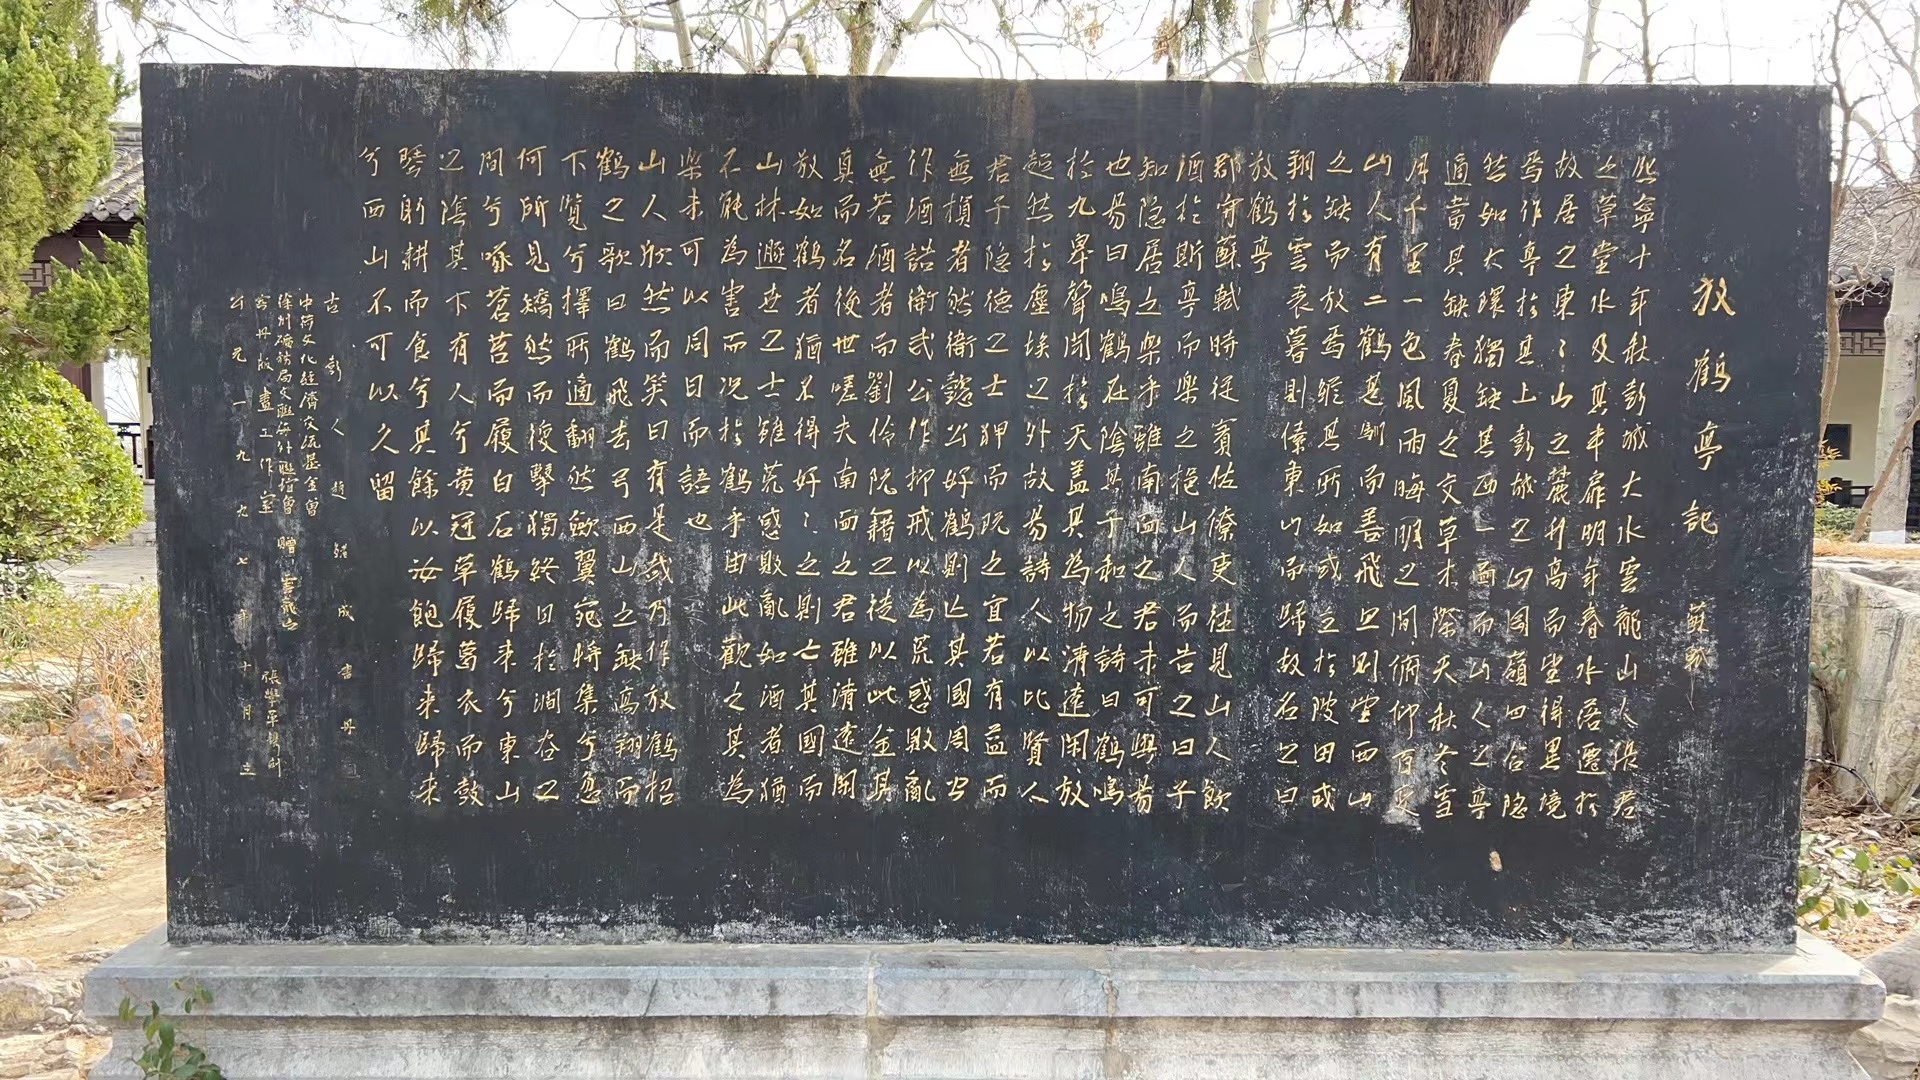 放鶴亭記 蘇軾
熙寧十年秋彭城大水雲龍山人張君
之草堂水及其半扉明年春水落遷於
故居之東〻山之麓升高而望得異境
焉作亭於其上彭城之山岡嶺四合隱
然如大環獨缺其西一面而山人之亭
適當其缺春夏之交草木際天秋冬雪
月千里一色風雨晦明之間俯仰百變
山人有二鶴甚馴而善飛旦則望西山
之缺而放焉縱其所如或立於陂田或
翔於雲表暮則傃東山而歸故名之曰
放鶴亭
郡守蘇軾時從賓佐僚吏往見山人飲
酒於斯亭而樂之挹山人而告之曰子
知隱居之樂乎雖南面之君未可與易
也易曰鳴鶴在陰其子和之詩曰鶴鳴
於九皋聲聞於天蓋其為物清遠閑放
超然於塵埃之外故易詩人以比賢人
君子隱德之士狎而玩之宜若有益而
無損者然衛懿公好鶴則亡其國周公
作酒誥衛武公作抑戒以為荒惑敗亂
無若酒者而劉伶阮籍之徒以此全其
真而名後世嗟夫南面之君雖清遠閑
放如鶴者猶不得好〻之則亡其國而
山林遯世之士雖荒惑敗亂如酒者猶
不能為害而况於鶴乎由此觀之其為
樂未可以同日而語也
山人欣然而笑曰有是哉乃作放鶴招
鶴之歌曰鶴飛去兮西山之缺高翔而
下覽兮擇所適翻然歛翼宛將集兮忽
何所見矯然而復擊獨終日於澗谷之
間兮啄蒼苔而履白石鶴歸來兮東山
之陰其下有人兮黃冠草履葛衣而鼓
琴躬耕而食兮其餘以汝飽歸來歸來
兮西山不可以久留
古彭人趙 成 書丹
中荷文化經濟交流基金會
徐州礦務局文聯海外聯誼會 贈 雲龍山
丹版畫工作室 張 軍
公元一九九七年十月立